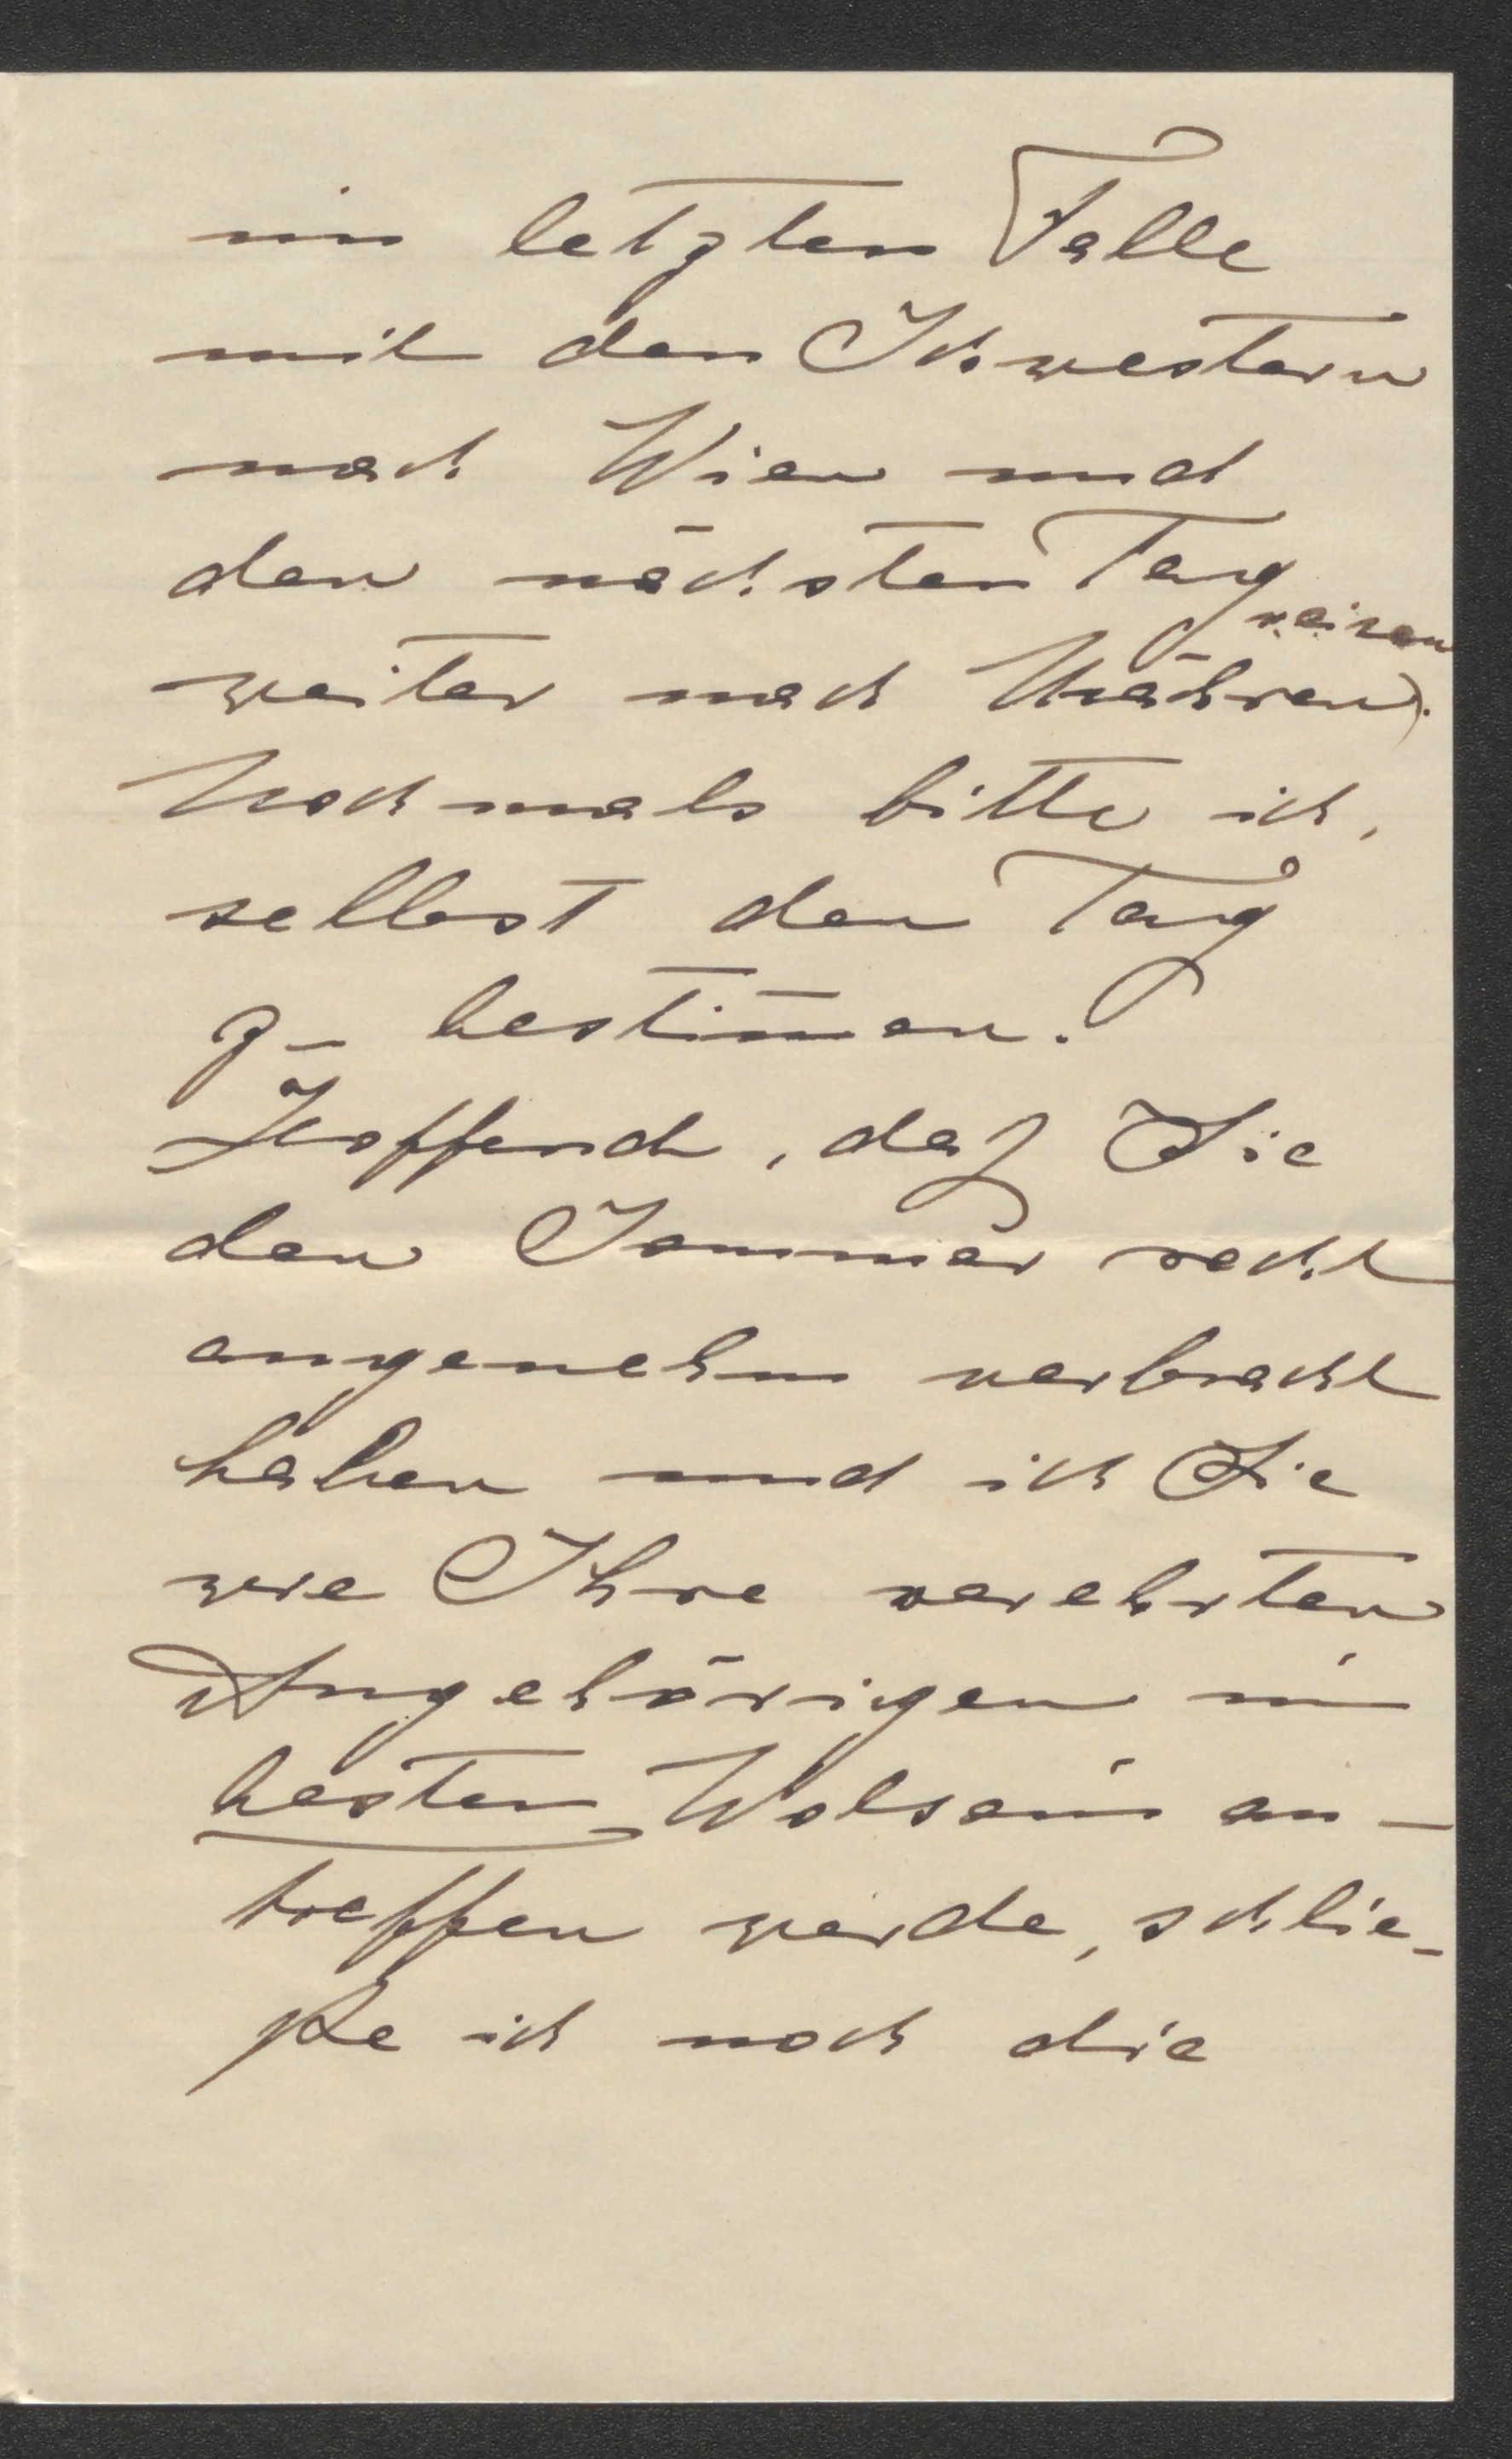 im letzten Falle
mit den Schwestern
nach Wien und
den nächsten Tag
reisen
weiter nach Mähren).
Nochmals bitte ich,
selbst den Tag
zu bestim̄en.
Hoffend, daß Sie
den Sommer recht
angenehm verbracht
haben und ich Sie
wie Ihre verehrten
Angehörigen im
besten Wolsein an-
treffen werde, schlie-
ße ich noch die